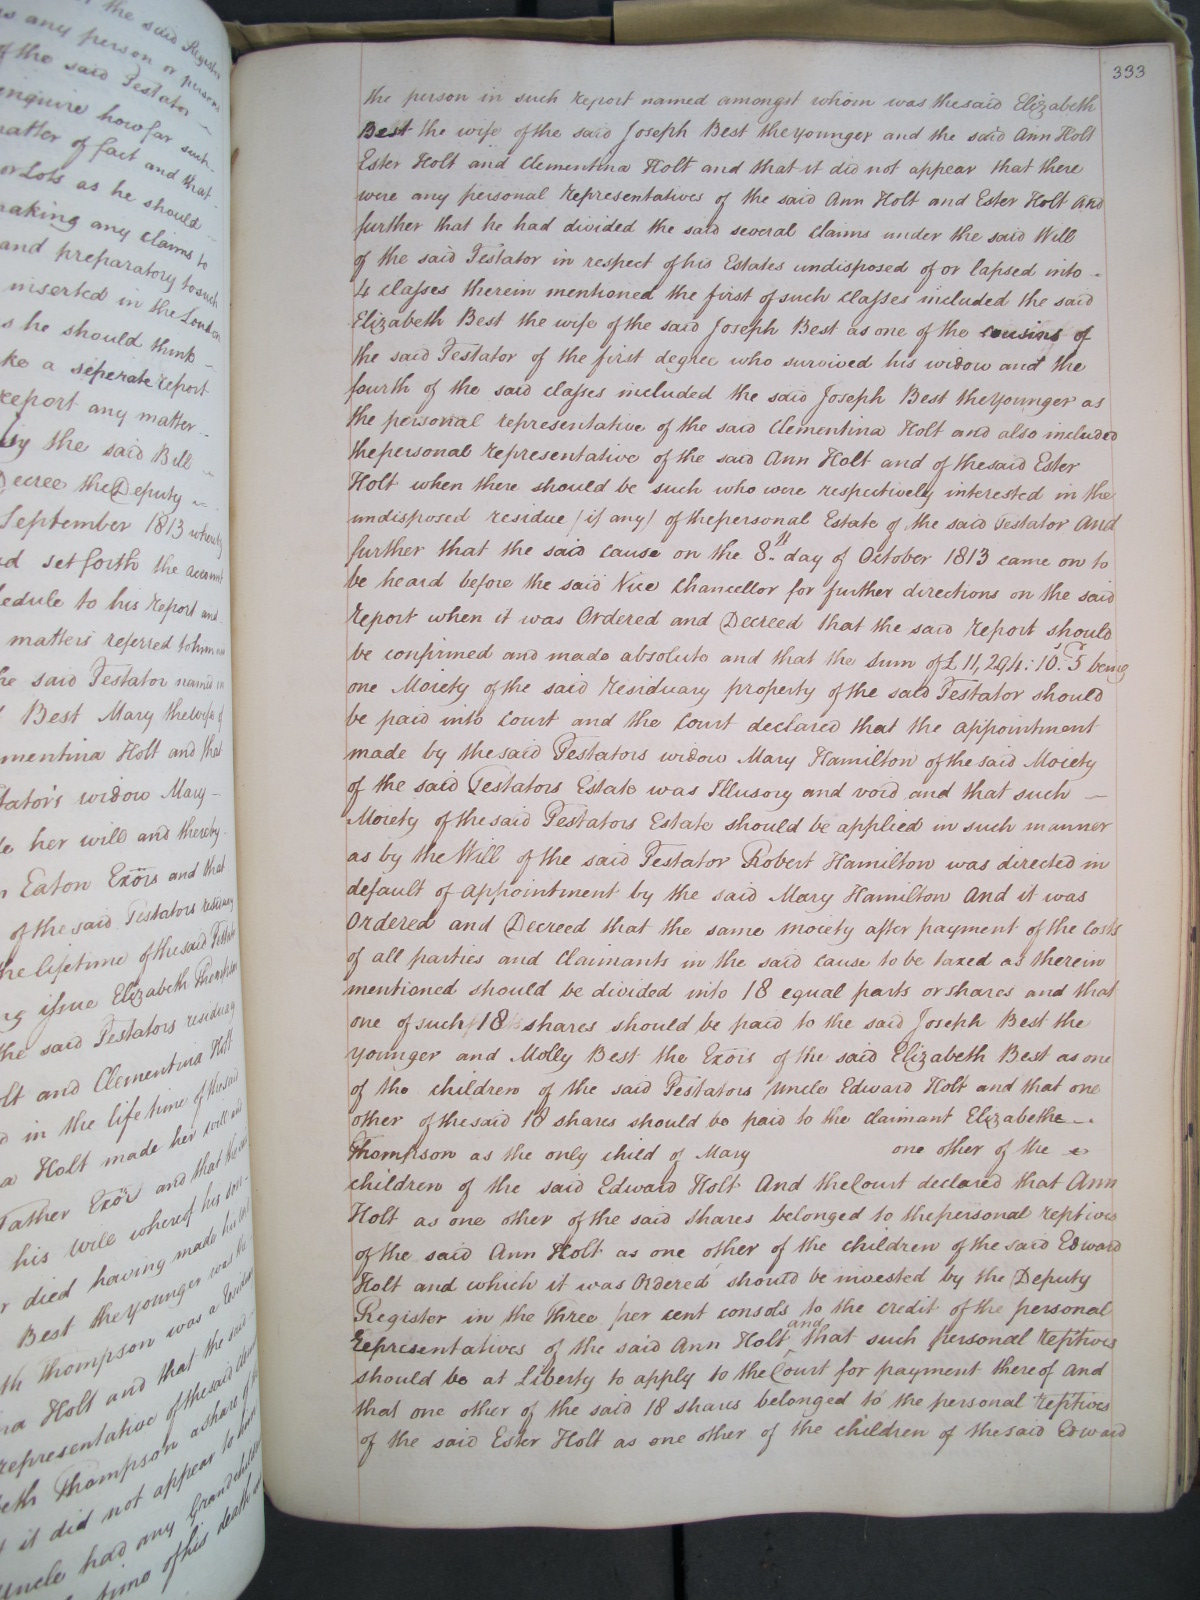 the said Register
as any person or persons
of the said Testator
enquire how far such
matter of fact and that
or Lots as he should
making any claims to
and preparatory to such
inserted in the London
as he should think
make a seperate report
report any matter
by the said Bill
Decree the Deputy
September 1813 whereby
set forth the account
Schedule to his report and
matters referred to him
the said Testator named in
Best Mary the wife of
Clementina Holt and that
Testator's widow Mary
her will and thereby
Eaton Exōrs and that
of the said Testators residuary
the lifetime of the said Testator
issue Elizabeth Thompson
the said Testators residuary
Holt and Clementina Holt
in the life time of the said
Holt made her will and
Father Exōr and that the said
his wife whereof his son
died having made his will
Best the younger was the
Thompson was a
Holt and that the said
representative of the said
Elizabeth Thompson a share of the
it did not appear to
Uncle had any Grandchildren
time of his death
333
the person in such report named amongst whom was the said Elizabeth
Best the wife of the said Joseph Best the younger and the said Ann Holt
Ester Holt and Clementina Holt and that it did not appear that there
were any personal representatives of the said Ann Holt and Ester Holt And
further that he had divided the said several claims under the said Will
of the said Testator in respect of his Estates undisposed of or lapsed into -
4 classes therein mentioned the first of such classes included the said
Elizabeth Best the wife of the said Joseph Best as one of the cousins of
the said Testator of the first degree who survived his widow and the
fourth of the said classes included the said Joseph Best the Younger as
the personal representative of the said Clementina Holt and also included
the personal representative of the said Ann Holt and of the said Ester
Holt when there should be such who were respectively interested in the
undisposed residue (if any) of the personal Estate of the said Testator And
further that the said cause on the 8th day of October 1813 came on to
be heard before the said Vice Chancellor for further directions on the said
report when it was Ordered and Decreed that the said report should
be confirmed and made absolute and that the Sum of £11,294:10s:5 being
one Moiety of the said residuary property of the said Testator should
be paid into Court and the Court declared that the appointment
made by the said Testators widow Mary Hamilton of the said Moiety
of the said Testators Estate was Illusory and void and that such —
Moiety of the said Testators Estate should be applied in such manner
as by the Will of the said Testator Robert Hamilton was directed in
default of appointment by the said Mary Hamilton And it was
Ordered and Decreed that the same moiety after payment of the Costs
of all parties and Claimants in the said cause to be taxed as therein
mentioned should be divided into 18 equal parts or shares and that
one of such 18 shares should be paid to the said Joseph Best the
younger and Molly Best the Exōrs of the said Elizabeth Best as one
of the children of the said Testators Uncle Edward Holt and that one
other of the said 18 shares should be paid to the claimant Elizabethe —
Thompson as the only child of Mary one other of the
children of the said Edward Holt And the Court declared that Ann
Holt as one other of the said shares belonged to the personal reptives
of the said Ann Holt as one other of the children of the said Edward
Holt and which it was Ordered should be invested by the Deputy
Register in the three per cent consols to the credit of the personal
representatives of the said Ann Holt and that such personal reptives
should be at Liberty to apply to the Court for payment thereof And
that one other of the said 18 shares belonged to the personal reptives
of the said Ester Holt as one other of the children of the said Edward